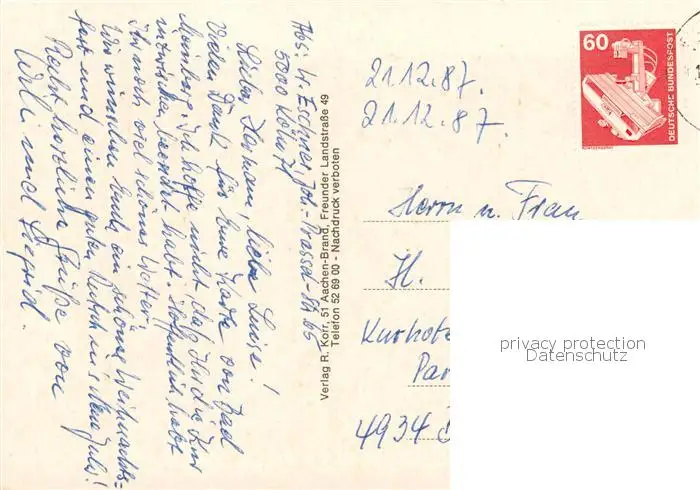 Abs: W. Eschner, Joh.-Prassel-Str. 65
5000 Köln 71
Lieber Hermann, liebe Luise!
Vielen Dank für Eure Karte von Bad
Meinberg. Ich hoffe nicht daß Ihr die Kur
nötig habt. Hoffentlich habt
Ihr noch viel schönes Wetter.
Wir wünschen Euch ein schönes Weihnachts-
fest und einen guten Rutsch ins Neue Jahr!
Recht herzliche Grüße von
Willi und Sigrid.
Verlag R. Korr, 51 Aachen-Brand, Freunder Landstraße 49
Telefon 52 69 00 - Nachdruck verboten
60
DEUTSCHE BUNDESPOST
21.12.87.
21.12.87.
Herrn u. Frau
H.
Kurhote
Par
4934
privacy protection
Datenschutz